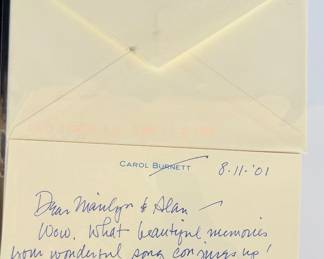 CAROL BURNETT 8.11.'01
Dear Marilyn & Alan —
Wow. What beautiful memories
your wonderful song conjures up!